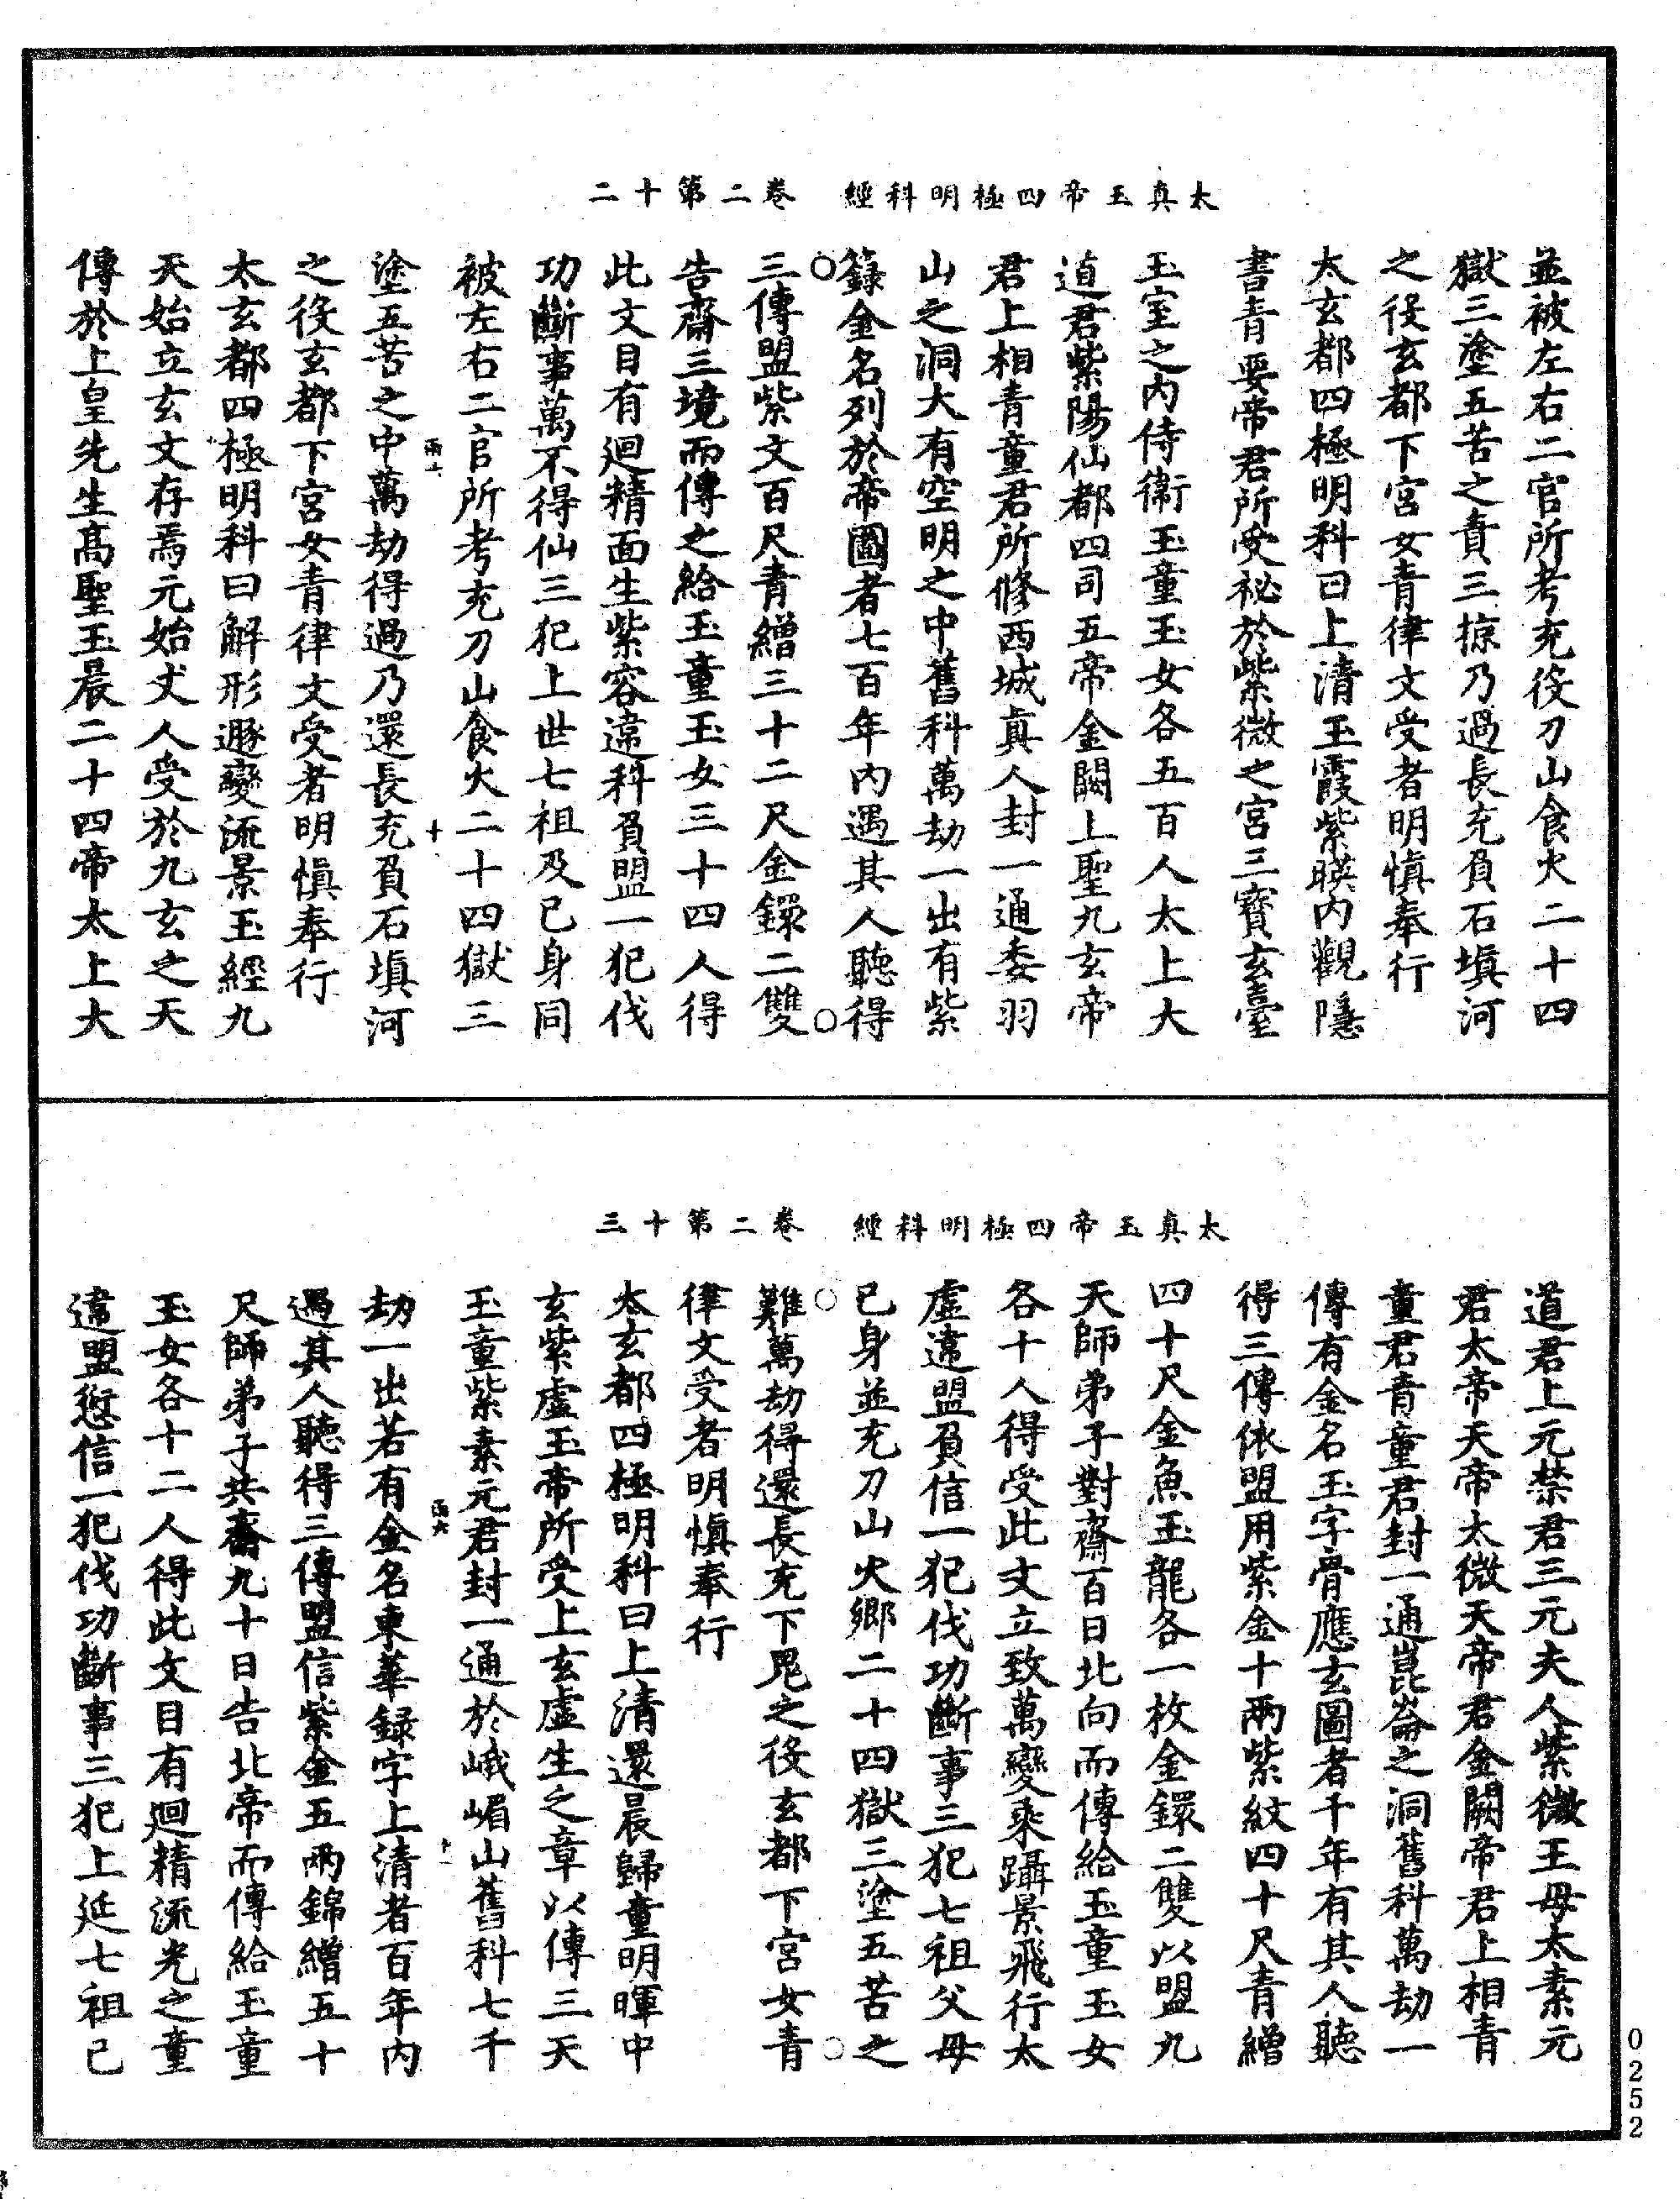 太真玉帝四極明科經　卷二第十二
並被左右二官所考充役刀山食火二十四
獄三塗五苦之責三掠乃過長充負石塡河
之役玄都下宮女青律文受者明愼奉行
太玄都四極明科曰上清玉霞紫暎内觀隱
書青要帝君所受祕於紫微之宮三寶玄臺
玉室之内侍衛玉童玉女各五百人太上大
道君紫陽仙都四司五帝金闕上聖九玄帝
君上相青童君所修西城眞人封一通委羽
山之洞大有空明之中舊科萬劫一出有紫
籙金名列於帝圖者七百年内遇其人聽得
三傳盟紫文百尺青繒三十二尺金鐶二雙
告齋三境而傳之給玉童玉女三十四人得
此文目有迴精面生紫容違科負盟一犯伐
功斷事萬不得仙三犯上世七祖及己身同
被左右二官所考充刀山食火二十四獄三
塗五苦之中萬劫得過乃還長充負石塡河
之役玄都下宮女青律文受者明愼奉行
太玄都四極明科曰解形遯變流景玉經九
天始立玄文存焉元始丈人受於九玄之天
傳於上皇先生高聖玉晨二十四帝太上大
太真玉帝四極明科經　卷二第十三
道君上元禁君三元夫人紫微王母太素元
君太帝天帝太微天帝君金闕帝君上相青
童君青童君封一通崑崙之洞舊科萬劫一
傳有金名玉字骨應玄圖者千年有其人聽
得三傳依盟用紫金十兩紫紋四十尺青繒
四十尺金魚玉龍各一枚金鐶二雙以盟九
天師弟子對齋百日北向而傳給玉童玉女
各十人得受此文立致萬變乘躡景飛行太
虛違盟負信一犯伐功斷事三犯七祖父母
己身並充刀山火鄉二十四獄三塗五苦之
難萬劫得還長充下鬼之役玄都下宮女青
律文受者明愼奉行
太玄都四極明科曰上清還晨歸童明暉中
玄紫虛玉帝所受上玄虛生之章以傳三天
玉童紫素元君封一通於峨嵋山舊科七千
劫一出若有金名東華録字上清者百年内
過其人聽得三傳盟信紫金五兩錦繒五十
尺師弟子共齋九十日告北帝而傳給玉童
玉女各十二人得此文目有迴精流光之童
違盟愆信一犯伐功斷事三犯上延七祖己
0252